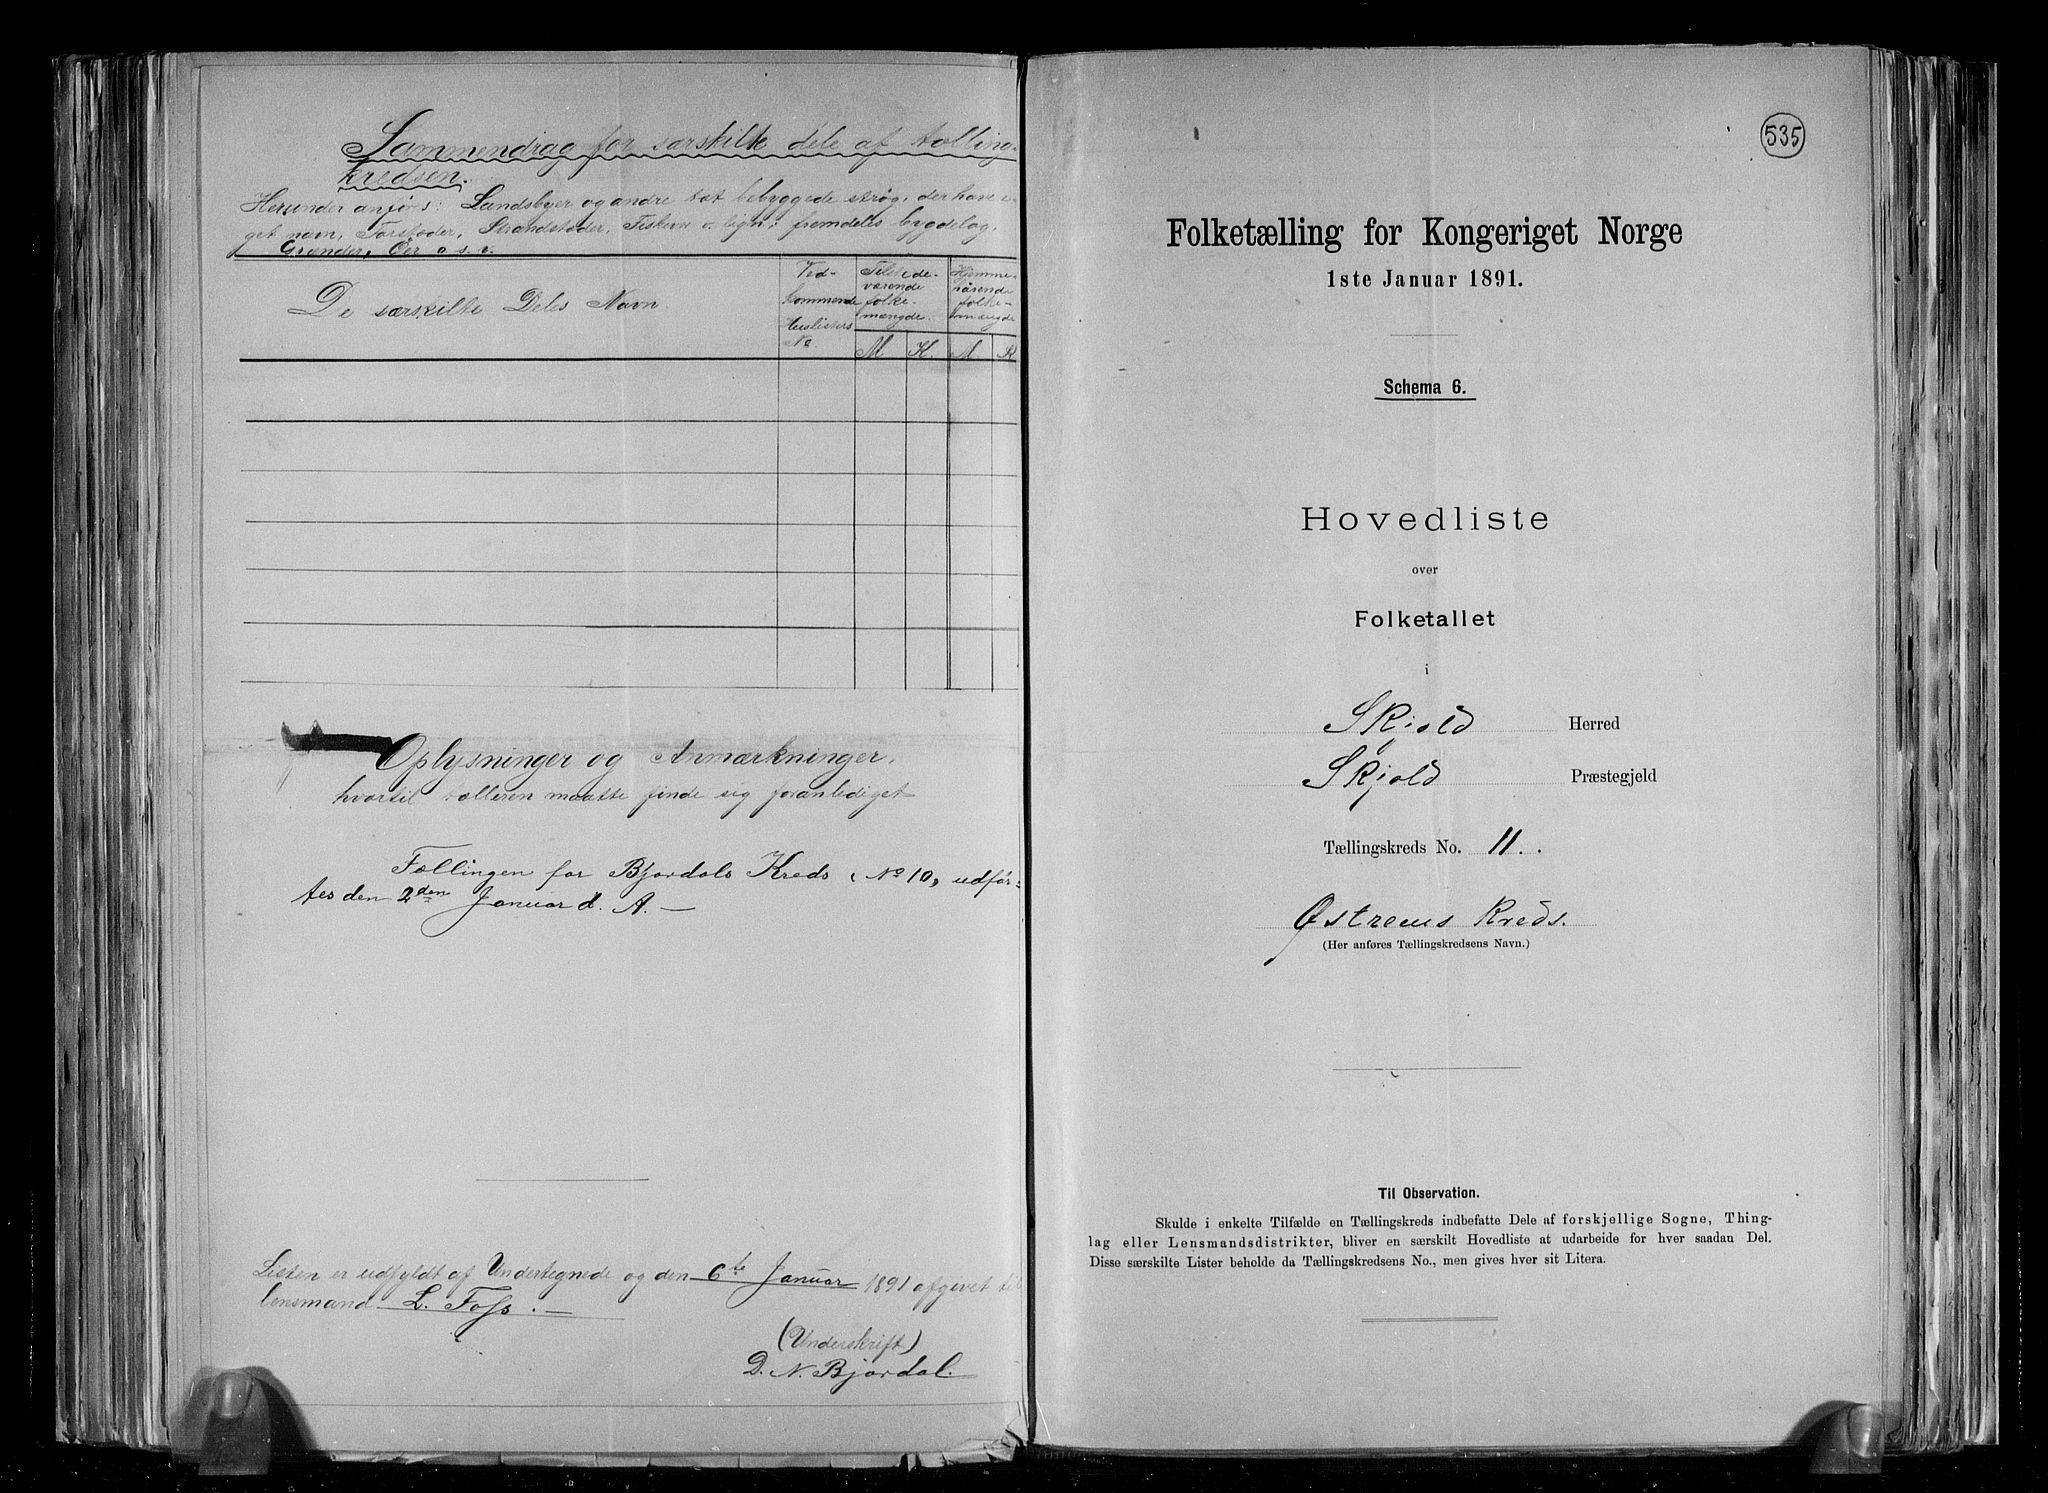 Sammendrag for særskilte dele af tælling-
kredsen.
Herunder anføres: Landsbyer og andre tæt bebyggede strøg, der have e-
get navn, Forstæder, Strandstæder, Fiskevær o. lign; fremdeles bygdelag,
Grænder, Öer o. s. v.
De særskilte Deles Navn
Ved-
kommende
Huslisters
No.
Tilstede-
værende
folke-
mængde.
Hjemme-
hörende
folke-
mængde
M K. M. K
Oplysninger og Anmærkninger,
hvortil tælleren maatte finde sig foranlediget
Tællingen for Bjordals Kreds, No 10, udför-
tes den 2den Januar d. A. —
Listen er udfyldt af Undertegnede og den 6te Januar 1891 afgivet til
lensmand L. Foss. —
(Underskrift)
D. N. Bjordal.
535
Folketælling for Kongeriget Norge
1ste Januar 1891.
Schema 6.
Hovedliste
over
Folketallet
i
Skjold Herred
Skjold Præstegjeld
Tællingskreds No. 11.
Østrems Kreds.
(Her anføres Tællingskredsens Navn.)
Til Observation.
Skulde i enkelte Tilfælde en Tællingskreds indbefatte Dele af forskjellige Sogne, Thing-
lag eller Lensmandsdistrikter, bliver en særskilt Hovedliste at udarbeide for hver saadan Del.
Disse særskilte Lister beholde da Tællingskredsens No., men gives hver sit Litera.